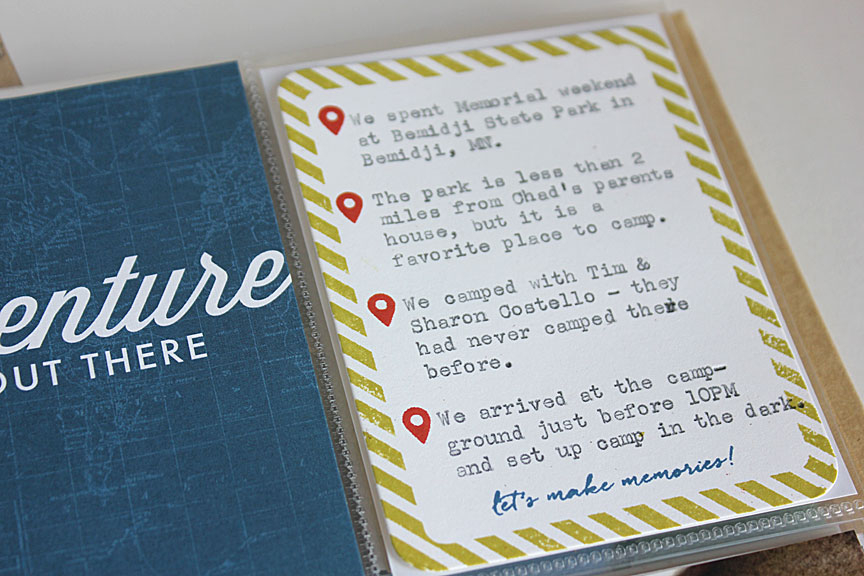 enture
OUT THERE
We spent Memorial weekend
at Bemidji State Park in
Bemidji, MN.
The park is less than 2
miles from Chad's parents
house, but it is a
favorite place to camp.
We camped with Tim &
Sharon Costello - they
had never camped there
before.
We arrived at the camp-
ground just before 10PM
and set up camp in the dark.
let's make memories!